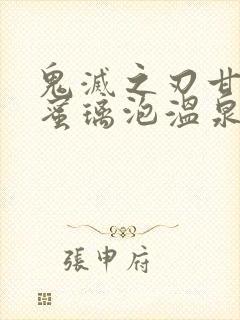 鬼滅之刃甘
蜜璃泡溫泉
張申府